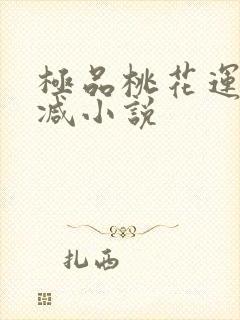 極品桃花運
减小説
扎西